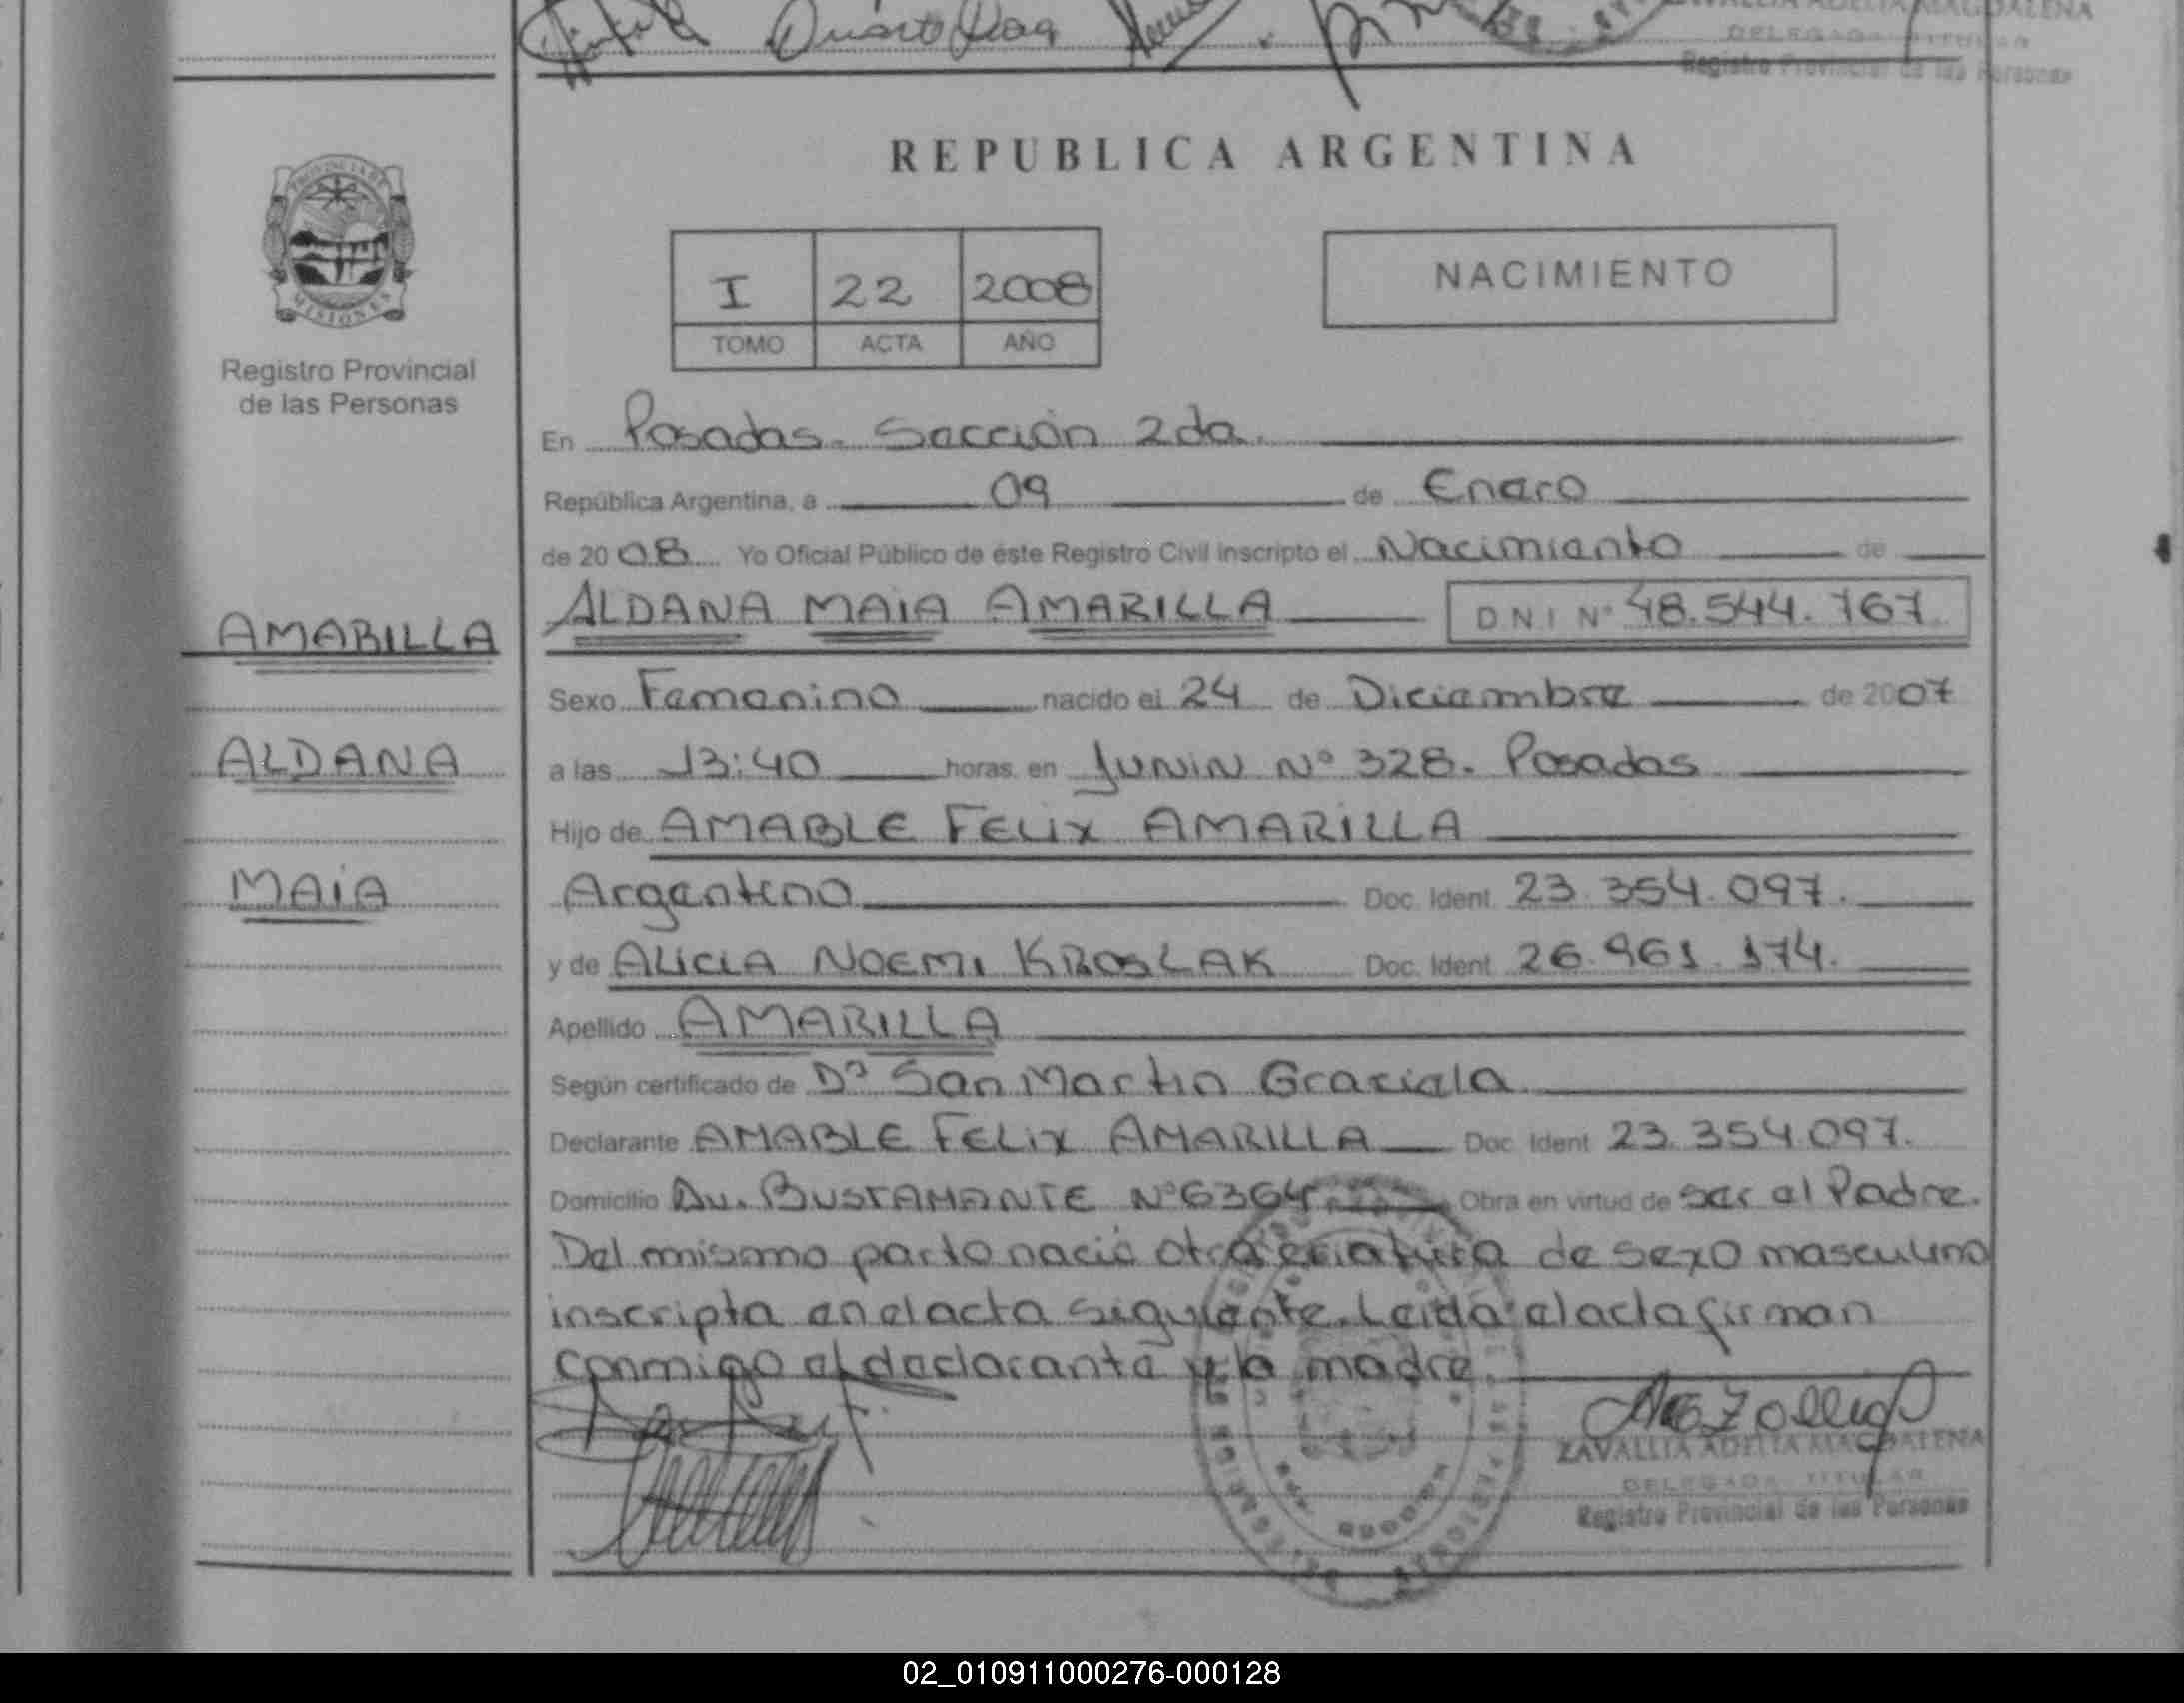 ZAVALLIA ADELIA MAGDALENA
DELEGADA TITULAR
Registro Provincial de las Personas
REPUBLICA ARGENTINA
PROVINCIA DE
MISIONES
I 22 2008
TOMO ACTA AÑO
NACIMIENTO
Registro Provincial
de las Personas
En Posadas. Sección 2da.
República Argentina, a 09 de Enero
de 2008 Yo Oficial Público de éste Registro Civil inscripto el Nacimiento de
AMARILLA
ALDANA
MAIA
ALDANA MAIA AMARILLA DNI Nº 48.544.767
Sexo Femenino nacido el 24 de Diciembre de 2007
a las 13:40 horas en JUNIN Nº 328. Posadas
Hijo de AMABLE FELIX AMARILLA
Argentino Doc. Ident. 23.354.097.
y de ALICIA NOEMI KROSLAK Doc. Ident. 26.961.174.
Apellido AMARILLA
Según certificado de Dª San Martin Graciela
Declarante AMABLE FELIX AMARILLA Doc. Ident. 23.354.097.
Domicilio Av. BUSTAMANTE Nº 6364 Obra en virtud de ser el Padre.
Del mismo parto nació otra criatura de sexo masculino
inscripta en el acta siguiente. Leida el acta firman
conmigo el declarante y la madre.
ZAVALLIA ADELIA MAGDALENA
DELEGADA TITULAR
Registro Provincial de las Personas
02_010911000276-000128